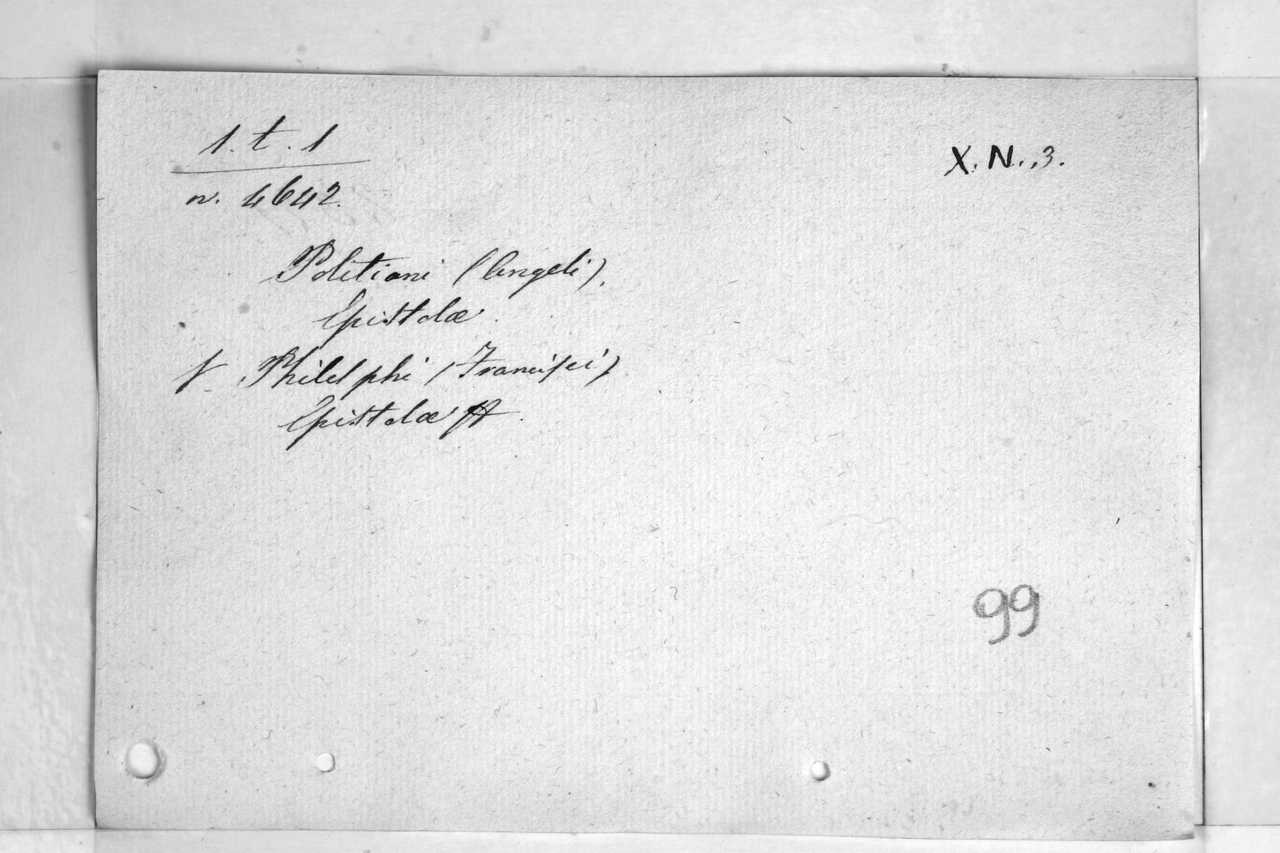 1. t. 1
X. N. 3.
n. 4642.
Politiani (Angeli).
Epistolæ.
V. Philelphi (Francisci)
Epistolæ
99